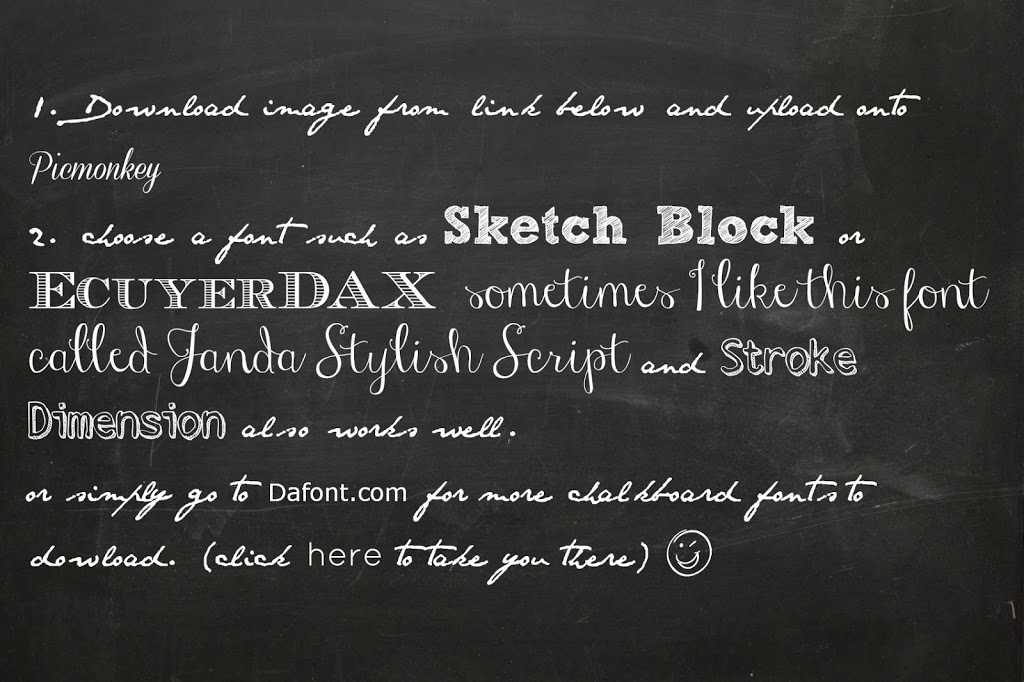 1. Download image from link below and upload onto
Picmonkey
2. choose a font such as Sketch Block or
ECUYERDAX sometimes I like this font
called Janda Stylish Script and Stroke
Dimension also works well.
or simply go to Dafont.com for more chalkboard fonts to
dowload. (click here to take you there)